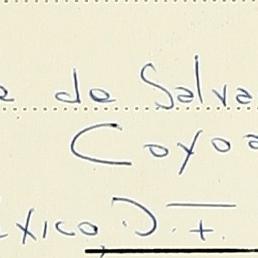 e de Salva
Coyoa
exico, D.F.